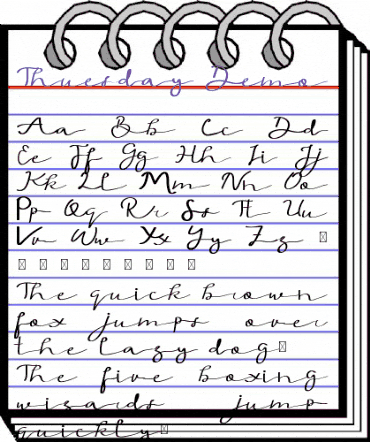 Thuesday Demo
Aa Bb Cc Dd
Ee Ff Gg Hh Ii Jj
Kk Ll Mm Nn Oo
Pp Qq Rr Ss Tt Uu
Vv Ww Xx Yy Zz
The quick brown
fox jumps over
the lazy dog
The five boxing
wizards jump
quickly